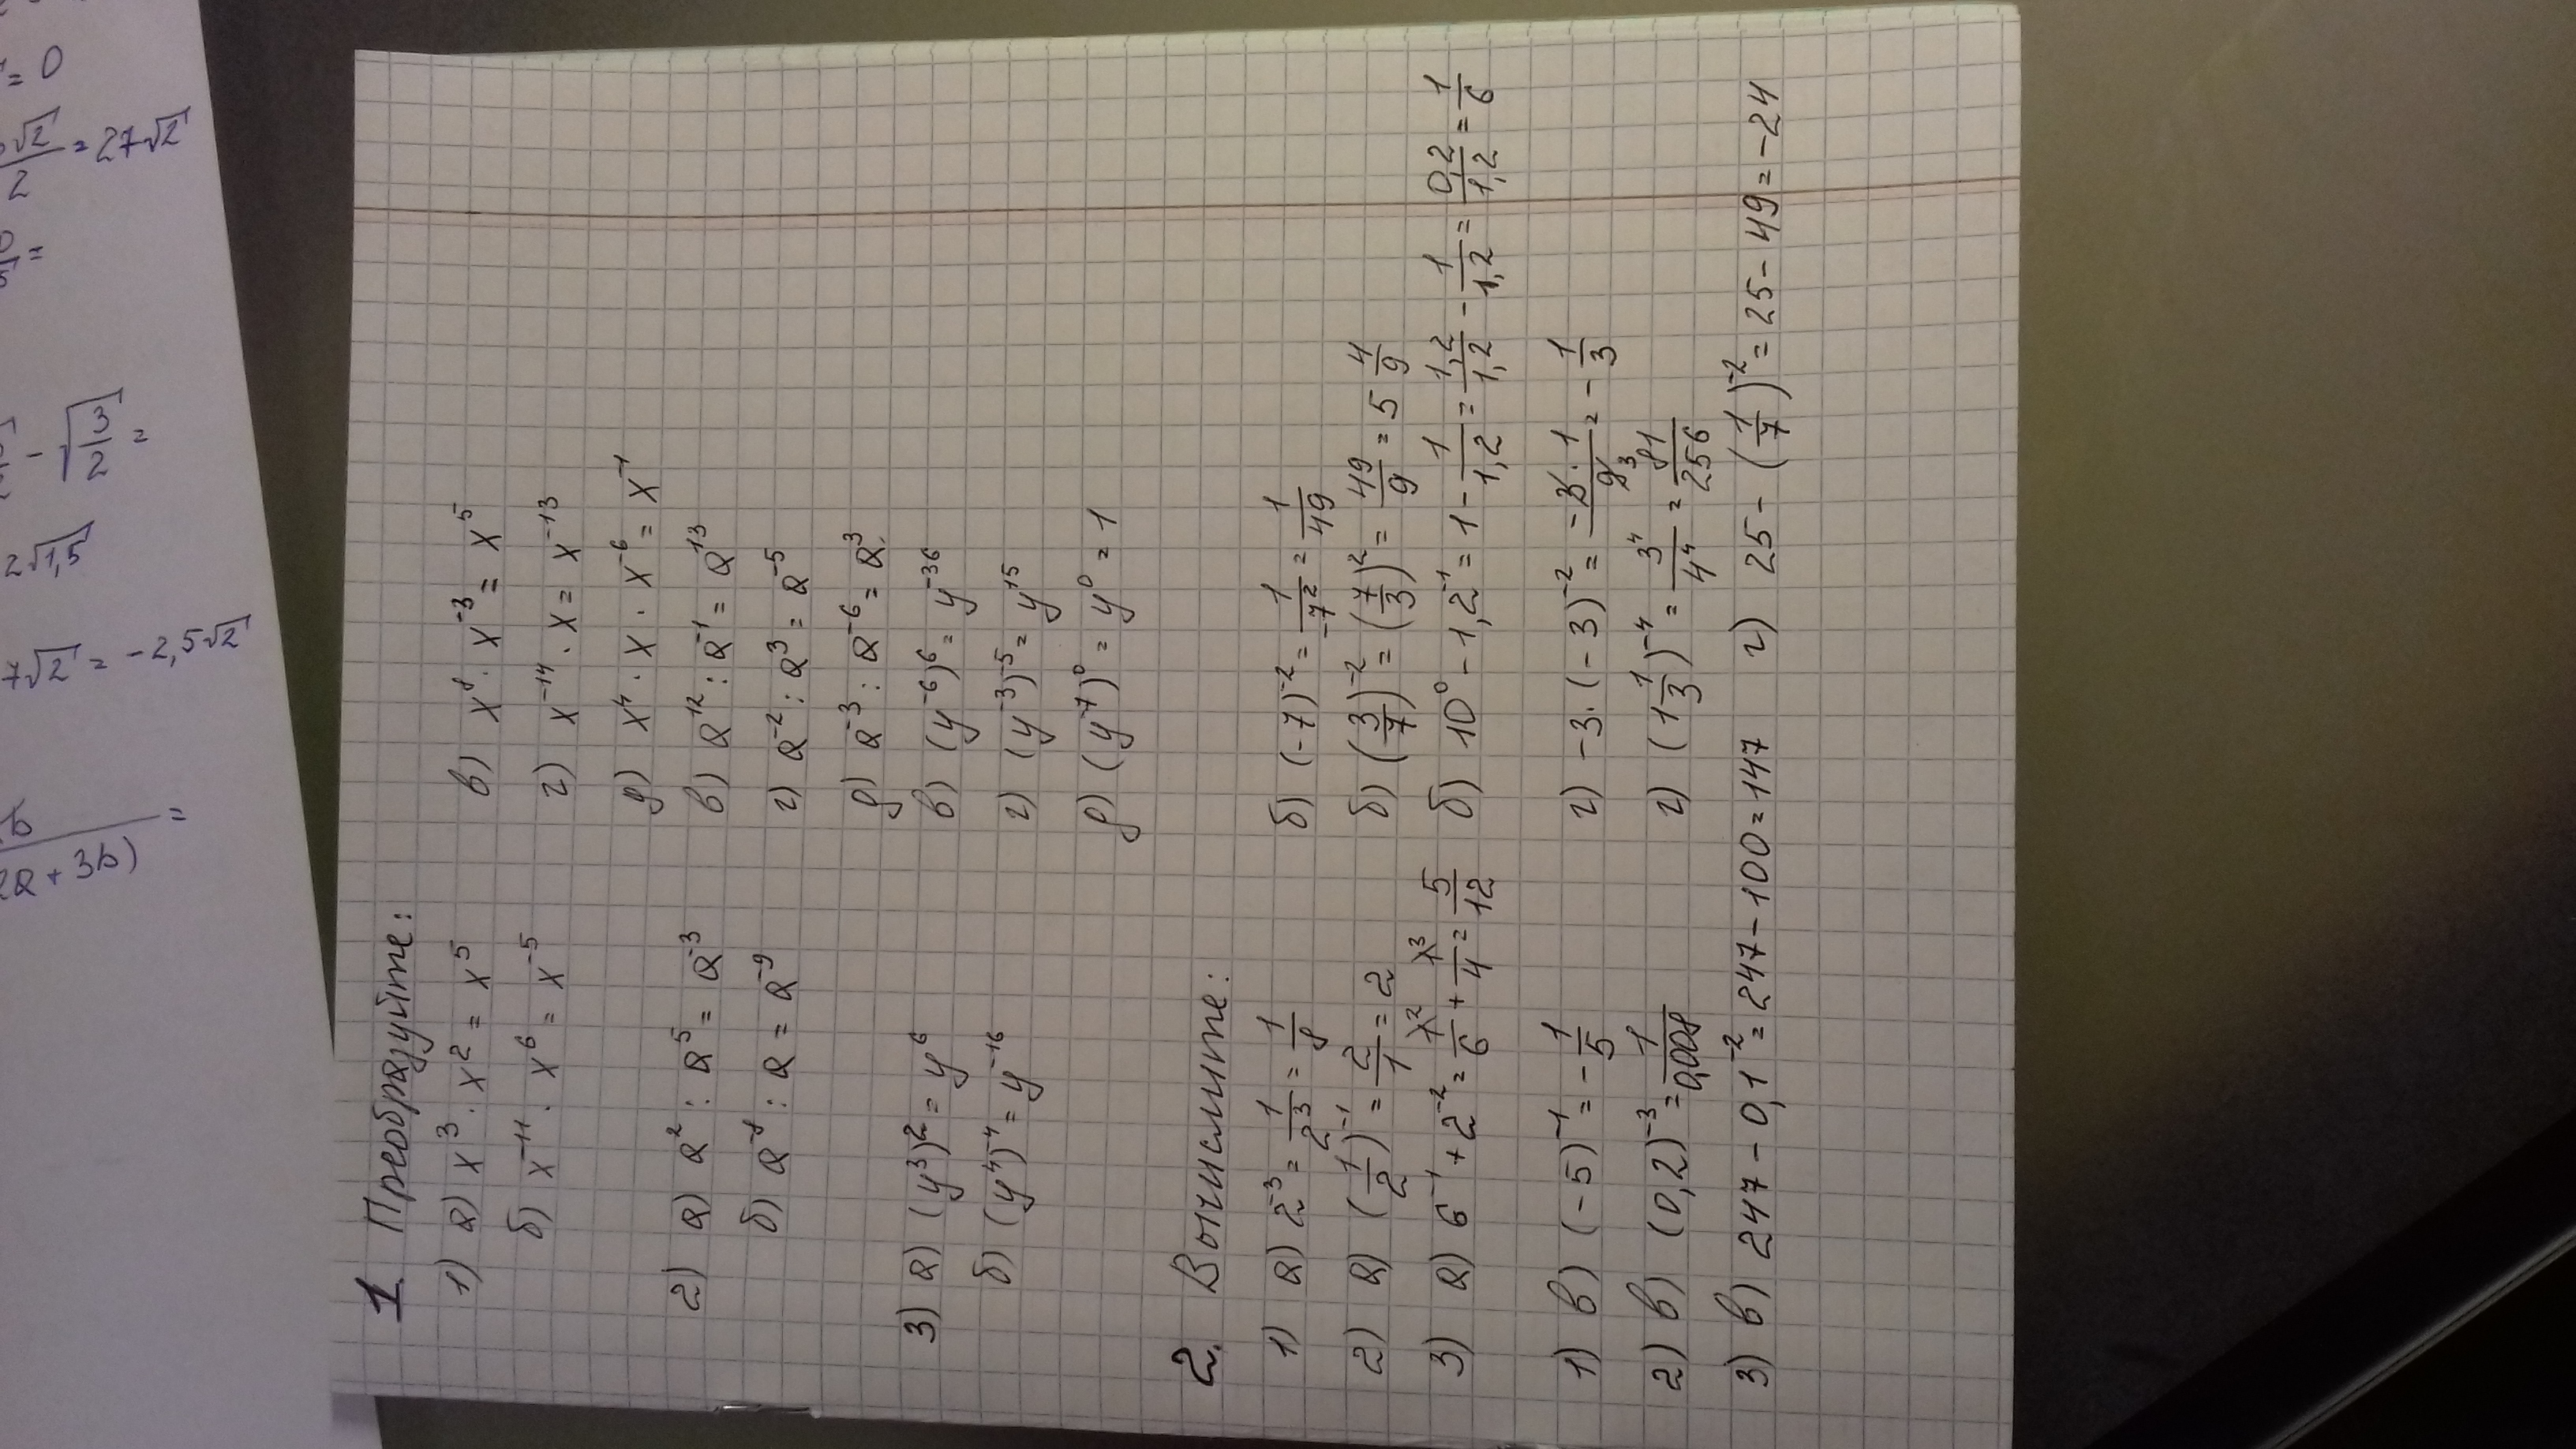 1. Преобразуйте:
1) а) x³ · x² = x⁵ в) x⁸ · x⁻³ = x⁵
б) x⁻¹¹ · x⁶ = x⁻⁵ г) x⁻¹⁴ · x = x⁻¹³
д) x⁴ · x · x⁻⁶ = x⁻¹
2) а) a² : a⁵ = a⁻³ в) a¹² : a⁻¹ = a¹³
б) a⁻⁸ : a = a⁻⁹ г) a⁻² : a³ = a⁻⁵
д) a⁻³ : a⁻⁶ = a³
3) а) (y³)² = y⁶ в) (y⁻⁶)⁶ = y⁻³⁶
б) (y⁴)⁻⁴ = y⁻¹⁶ г) (y⁻³)⁻⁵ = y¹⁵
д) (y⁻⁷)⁰ = y⁰ = 1
2. Вычислите:
1) а) 2⁻³ = 1/2³ = 1/8 б) (-7)⁻² = 1/-7² = 1/49
2) а) (1/2)⁻¹ = 2/1 = 2 б) (3/7)⁻² = (7/3)² = 49/9 = 5 4/9
3) а) 6⁻¹ + 2⁻² = 1\²/6 + 1\³/4 = 5/12 б) 10⁰ - 1,2⁻¹ = 1 - 1/1,2 = 1,2/1,2 - 1/1,2 = 0,2/1,2 = 1/6
1) в) (-5)⁻¹ = -1/5 г) -3 · (-3)⁻² = -3·1/9 3 = -1/3
2) в) (0,2)⁻³ = 1/0,008 г) (1 1/3)⁻⁴ = 3⁴/4⁴ = 81/256
3) в) 247 - 0,1⁻² = 247 - 100 = 147 г) 25 - (1/7)⁻² = 25 - 49 = -24
= 0
√2/2 = 27√2
=
- √3/2 =
2√1,5
7√2 = -2,5√2
b/(2a + 3b) =